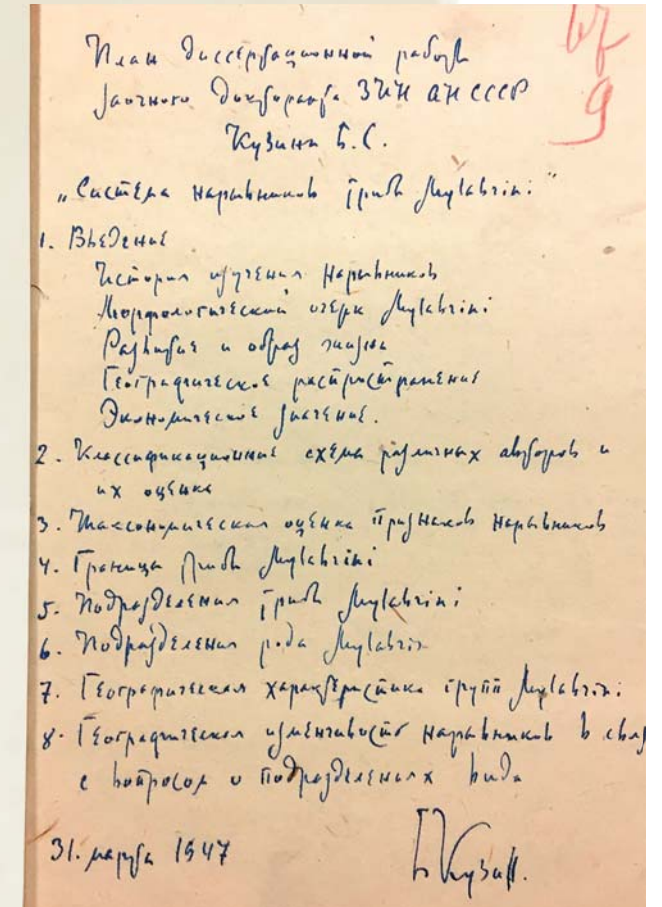 67
9
План диссертационной работы
заочного докторанта ЗИН АН СССР
Кузина Б.С.
„Система нарывников трибы Mylabrini“
1. Введение
История изучения нарывников
Морфологический очерк Mylabrini
Развитие и образ жизни
Географическое распространение
Экономическое значение.
2. Классификационные схемы различных авторов и
их оценка
3. Таксономическая оценка признаков нарывников
4. Границы трибы Mylabrini
5. Подразделения трибы Mylabrini
6. Подразделения рода Mylabris
7. Географическая характеристика групп Mylabrini
8. Географическая изменчивость нарывников в связи
с вопросом о подразделениях вида
31. марта 1947
Б Кузин.